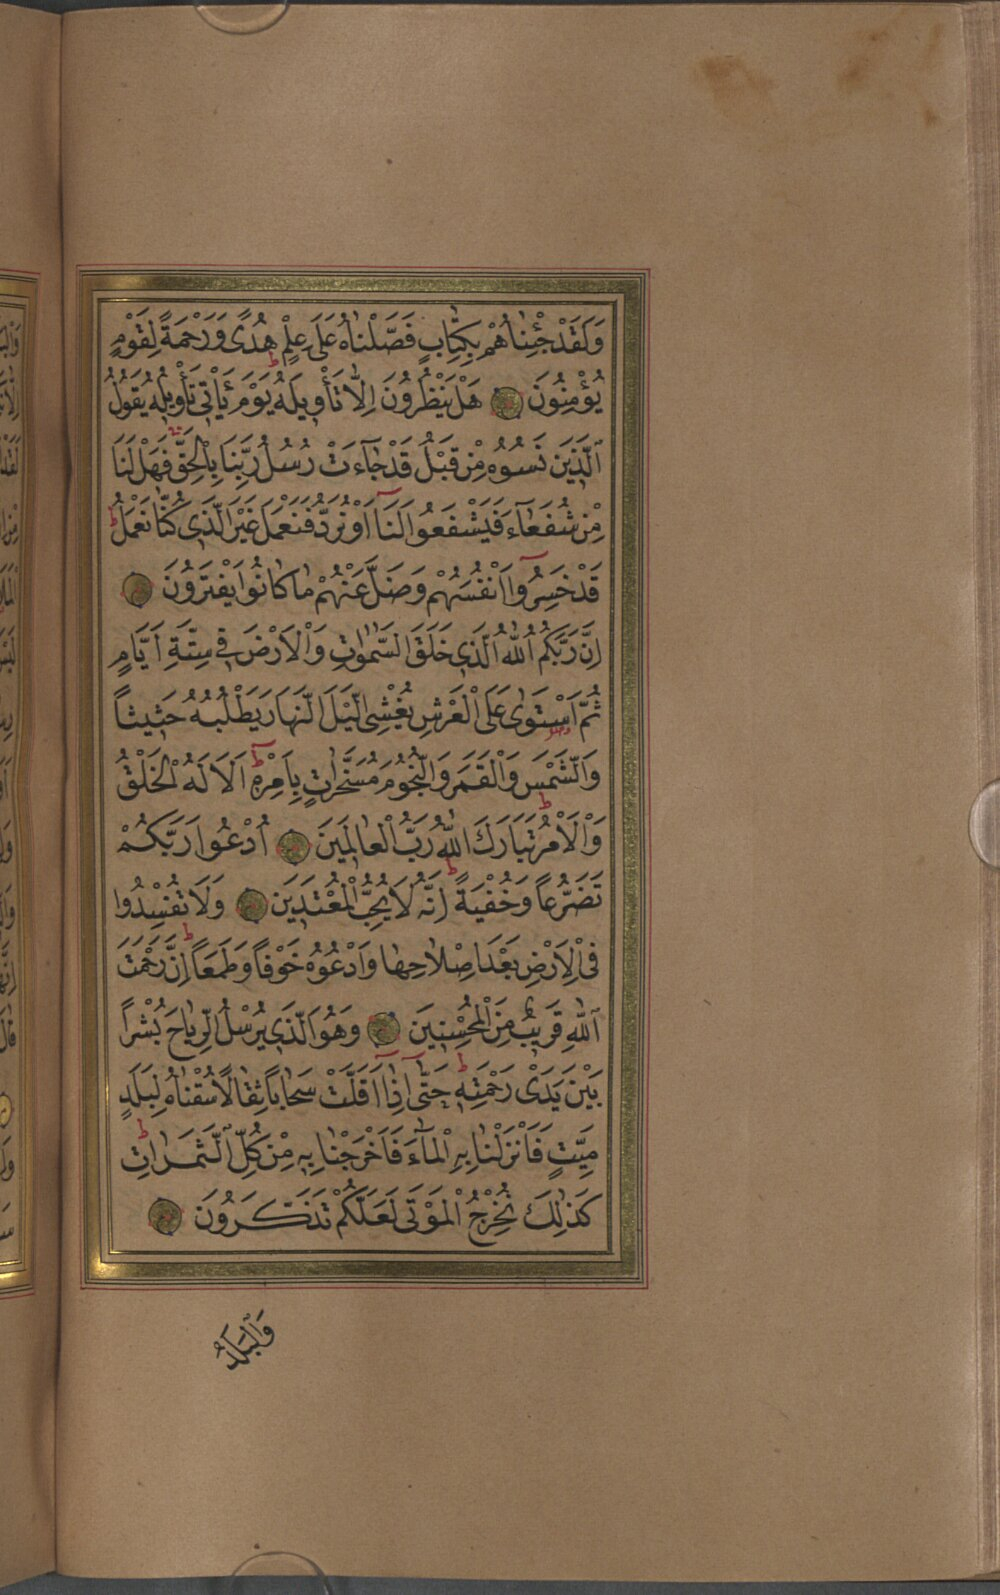 وَلَقَدْ جِئْنَاهُمْ بِكِتَابٍ فَصَّلْنَاهُ عَلَى عِلْمٍ هُدًى وَرَحْمَةً لِقَوْمٍ
يُؤْمِنُونَ هَلْ يَنْظُرُونَ اِلَّا تَأْوِيلَهُ يَوْمَ يَأْتِى تَأْوِيلُهُ يَقُولُ
الَّذِينَ نَسُوهُ مِنْ قَبْلُ قَدْ جَاءَتْ رُسُلُ رَبِّنَا بِالْحَقِّ فَهَلْ لَنَا
مِنْ شُفَعَاءَ فَيَشْفَعُوا لَنَا اَوْ نُرَدُّ فَنَعْمَلَ غَيْرَ الَّذِى كُنَّا نَعْمَلُ
قَدْ خَسِرُوا اَنْفُسَهُمْ وَضَلَّ عَنْهُمْ مَا كَانُوا يَفْتَرُونَ
اِنَّ رَبَّكُمُ اللّٰهُ الَّذِى خَلَقَ السَّمٰوَاتِ وَالْاَرْضَ فِى سِتَّةِ اَيَّامٍ
ثُمَّ اسْتَوٰى عَلَى الْعَرْشِ يُغْشِى الَّيْلَ النَّهَارَ يَطْلُبُهُ حَثِيثًا
وَالشَّمْسَ وَالْقَمَرَ وَالنُّجُومَ مُسَخَّرَاتٍ بِاَمْرِهِ اَلَا لَهُ الْخَلْقُ
وَالْاَمْرُ تَبَارَكَ اللّٰهُ رَبُّ الْعَالَمِينَ اُدْعُوا رَبَّكُمْ
تَضَرُّعًا وَخُفْيَةً اِنَّهُ لَا يُحِبُّ الْمُعْتَدِينَ وَلَا تُفْسِدُوا
فِى الْاَرْضِ بَعْدَ اِصْلَاحِهَا وَادْعُوهُ خَوْفًا وَطَمَعًا اِنَّ رَحْمَتَ
اللّٰهِ قَرِيبٌ مِنَ الْمُحْسِنِينَ وَهُوَ الَّذِى يُرْسِلُ الرِّيَاحَ بُشْرًا
بَيْنَ يَدَىْ رَحْمَتِهِ حَتَّى اِذَا اَقَلَّتْ سَحَابًا ثِقَالًا سُقْنَاهُ لِبَلَدٍ
مَيِّتٍ فَاَنْزَلْنَا بِهِ الْمَاءَ فَاَخْرَجْنَا بِهِ مِنْ كُلِّ الثَّمَرَاتِ
كَذٰلِكَ نُخْرِجُ الْمَوْتٰى لَعَلَّكُمْ تَذَكَّرُونَ
وَالْبَلَدُ